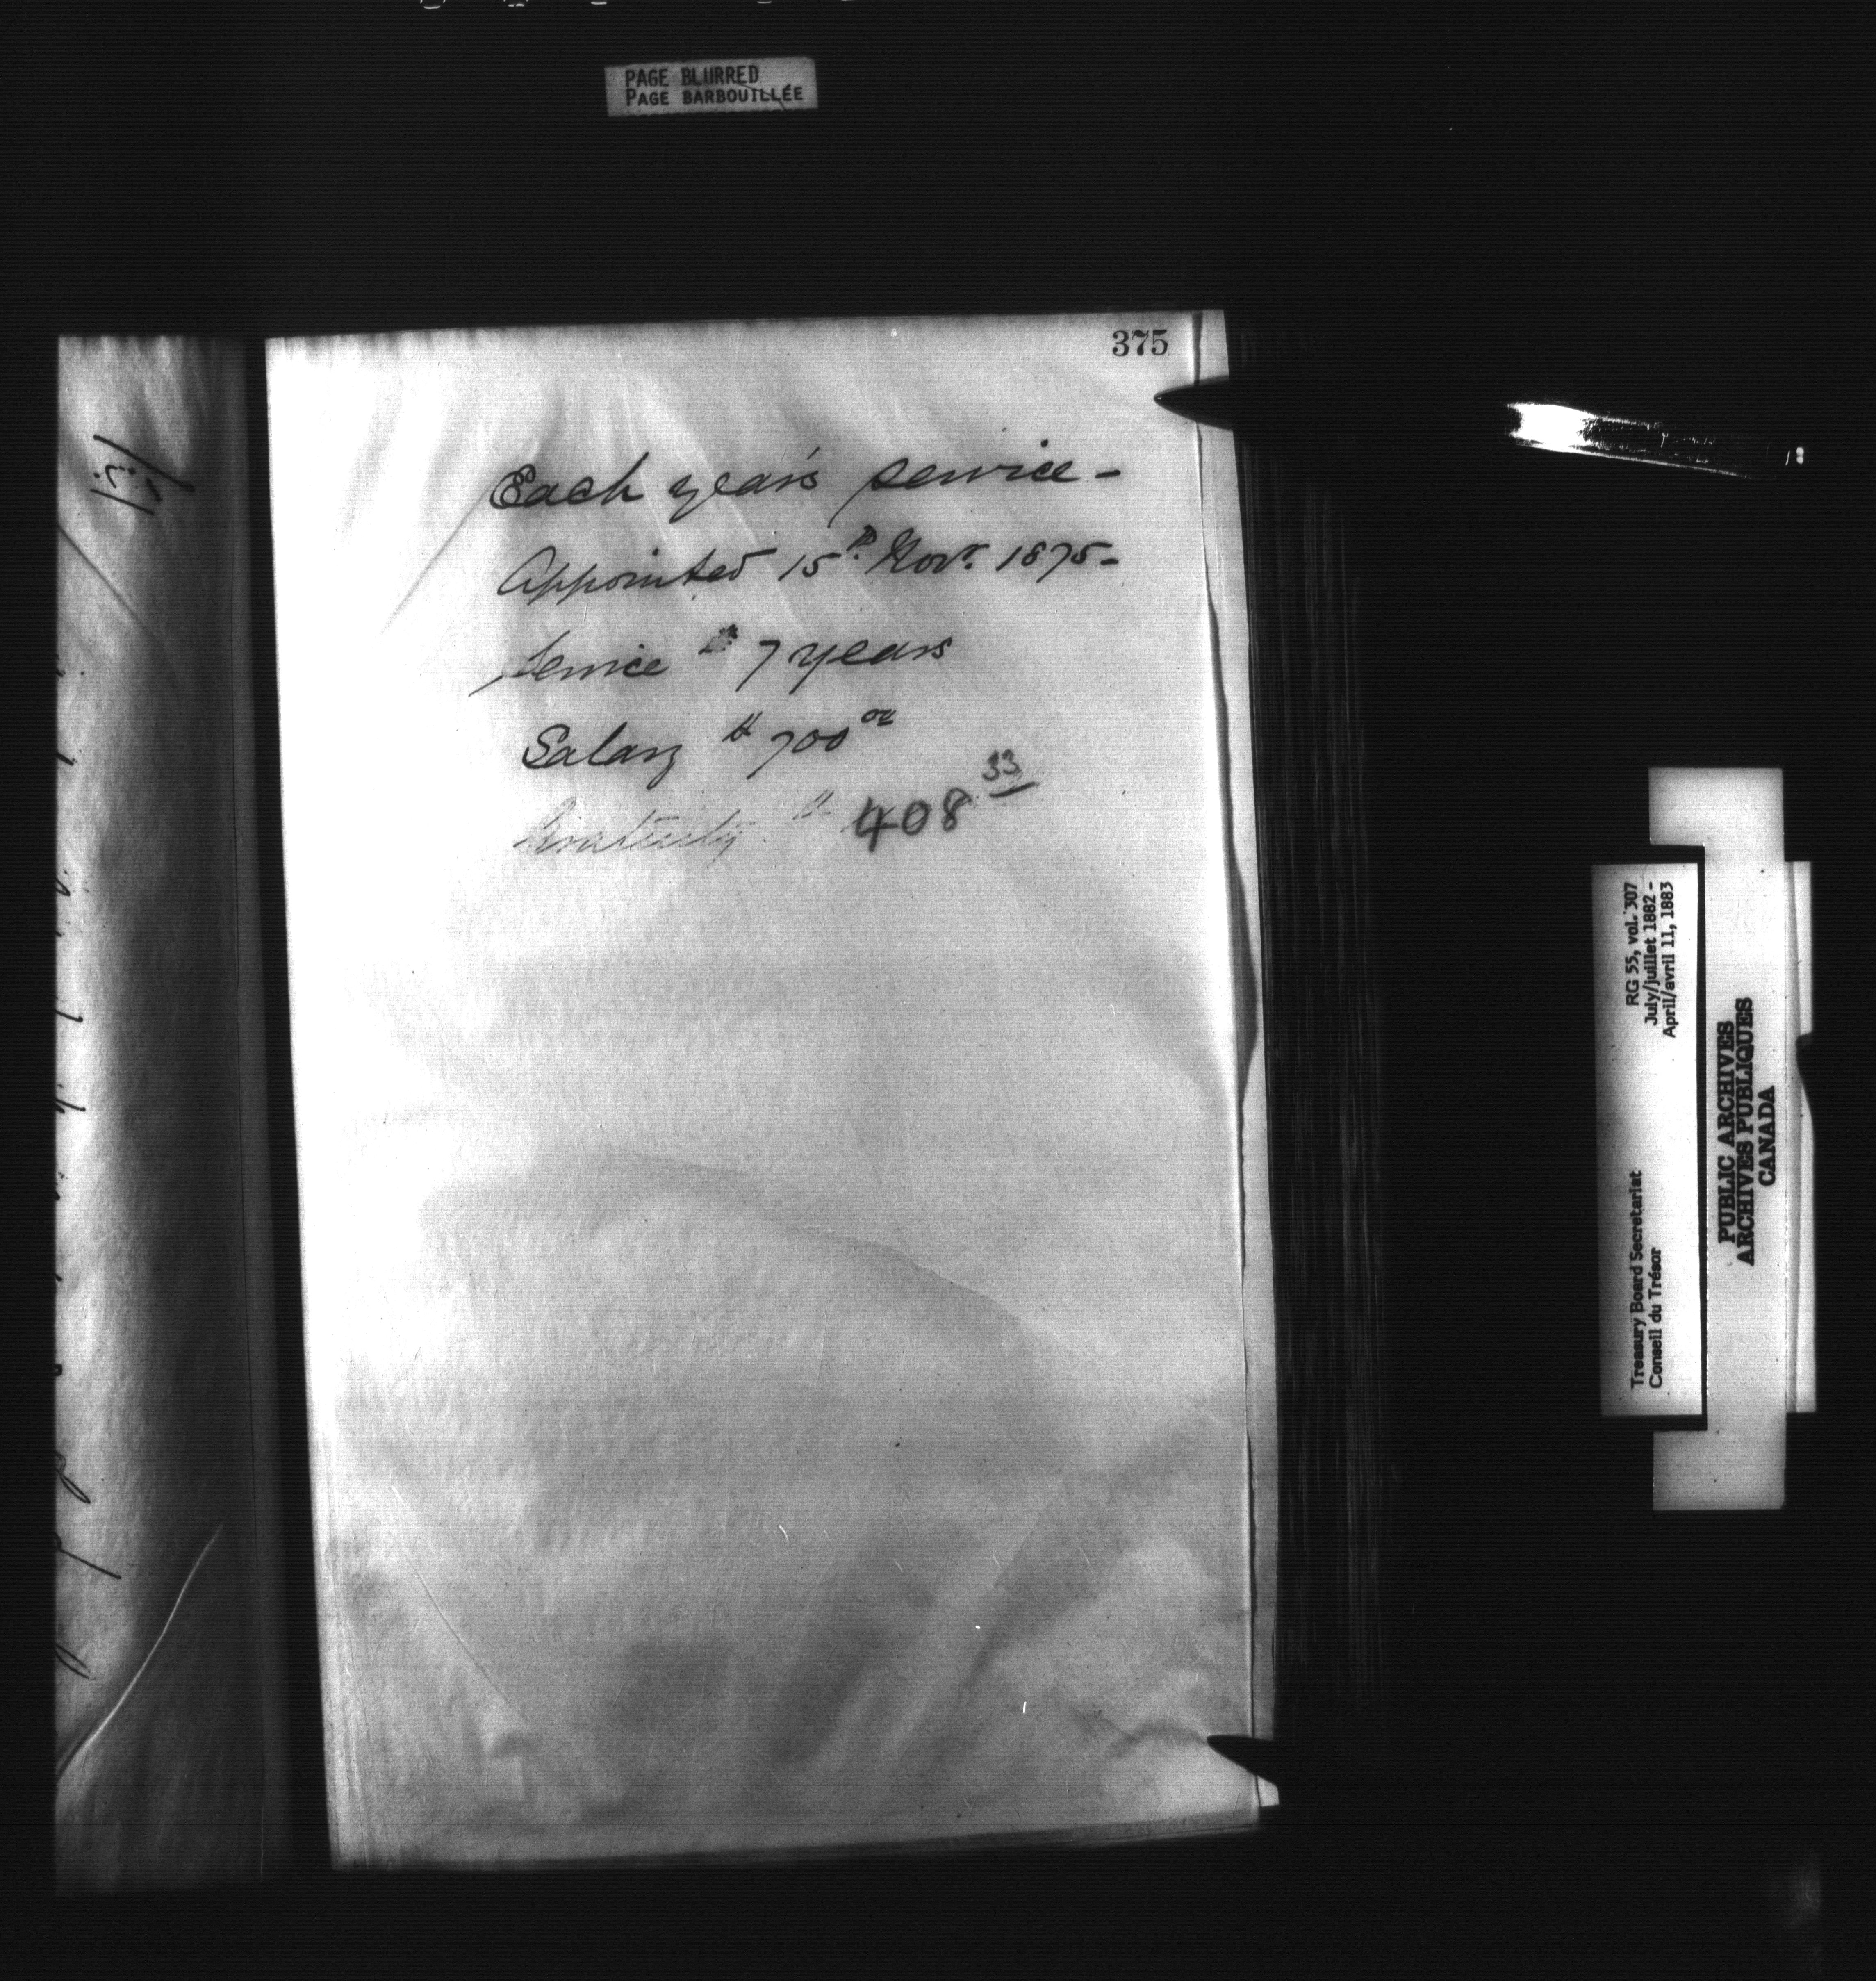 PAGE BLURRED
PAGE BARBOUILLÉE
375
Each year's service -
Appointed 15th Novr. 1875 -
Service 7 years
Salary $ 700 00
Gratuity $ 408 33
RG 55, vol. 307
July/juillet 1882 -
April/avril 11, 1883
Treasury Board Secretariat
Conseil du Trésor
PUBLIC ARCHIVES
ARCHIVES PUBLIQUES
CANADA